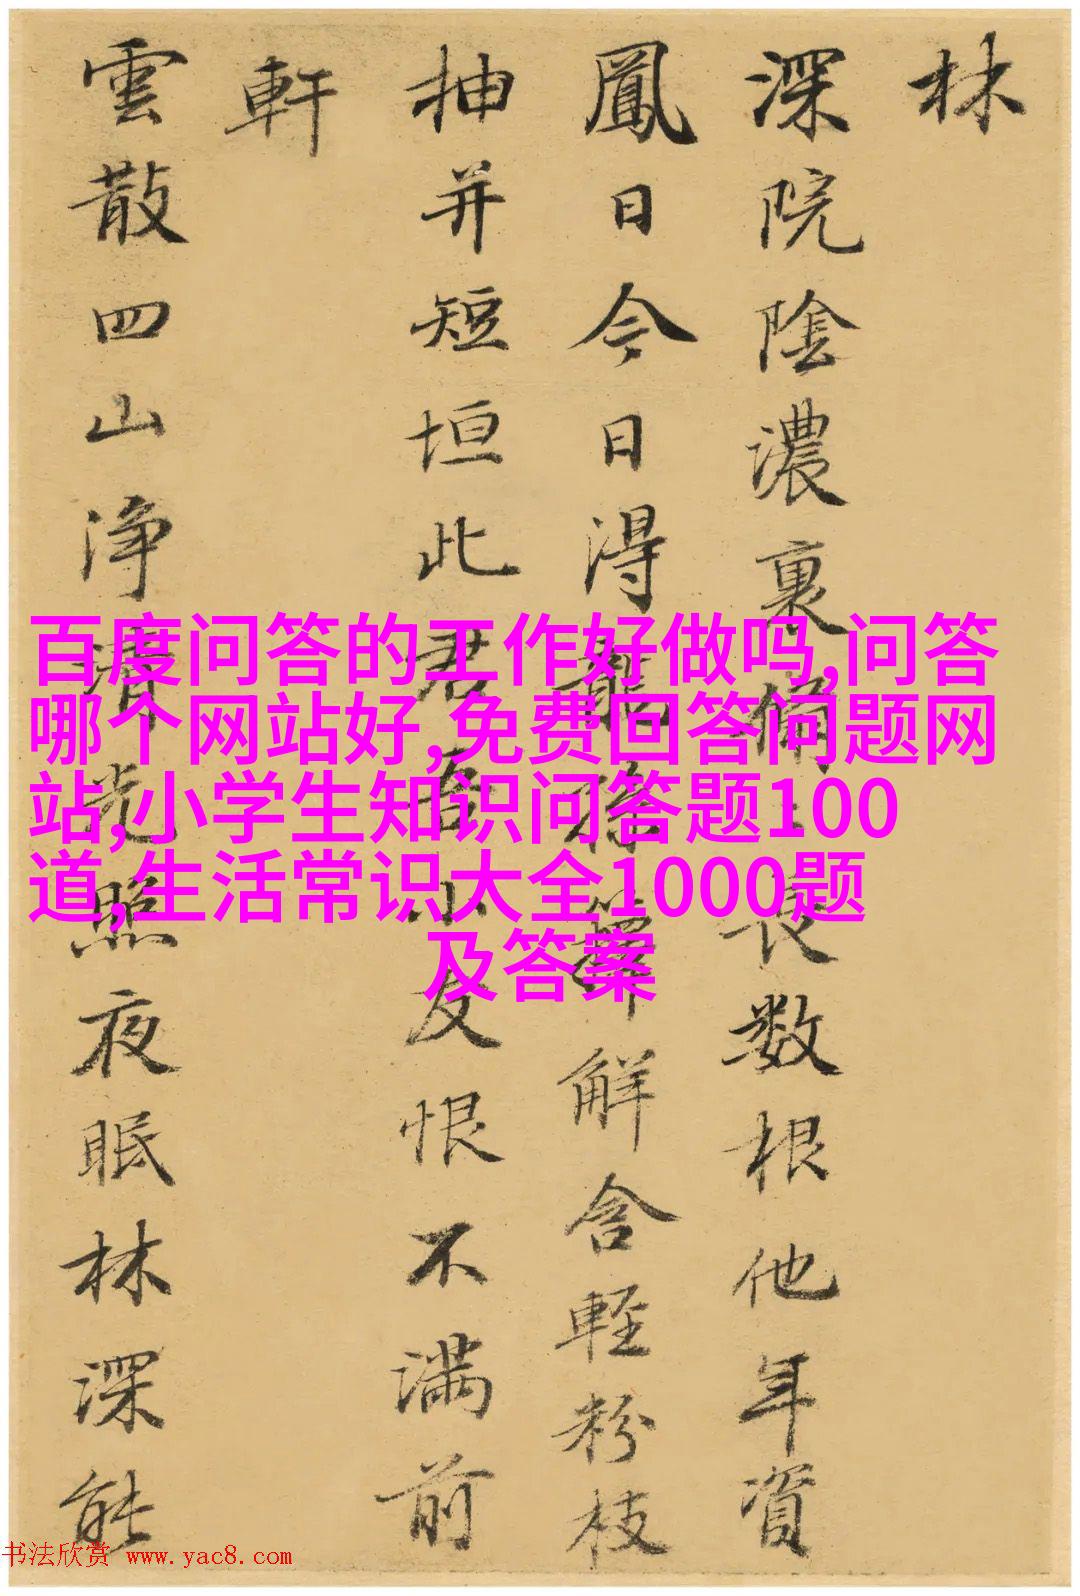 林
深院陰濃裏脩丶長数根他年資
鳳日今日得龍孫籜解含輕粉枝
抽并短垣此君吾小友恨不满前
軒
雲散四山净清光照夜眠林深能
百度问答的工作好做吗,问答
哪个网站好,免费回答问题网
站,小学生知识问答题100
道,生活常识大全1000题
及答案
书法欣赏 www.yac8.com